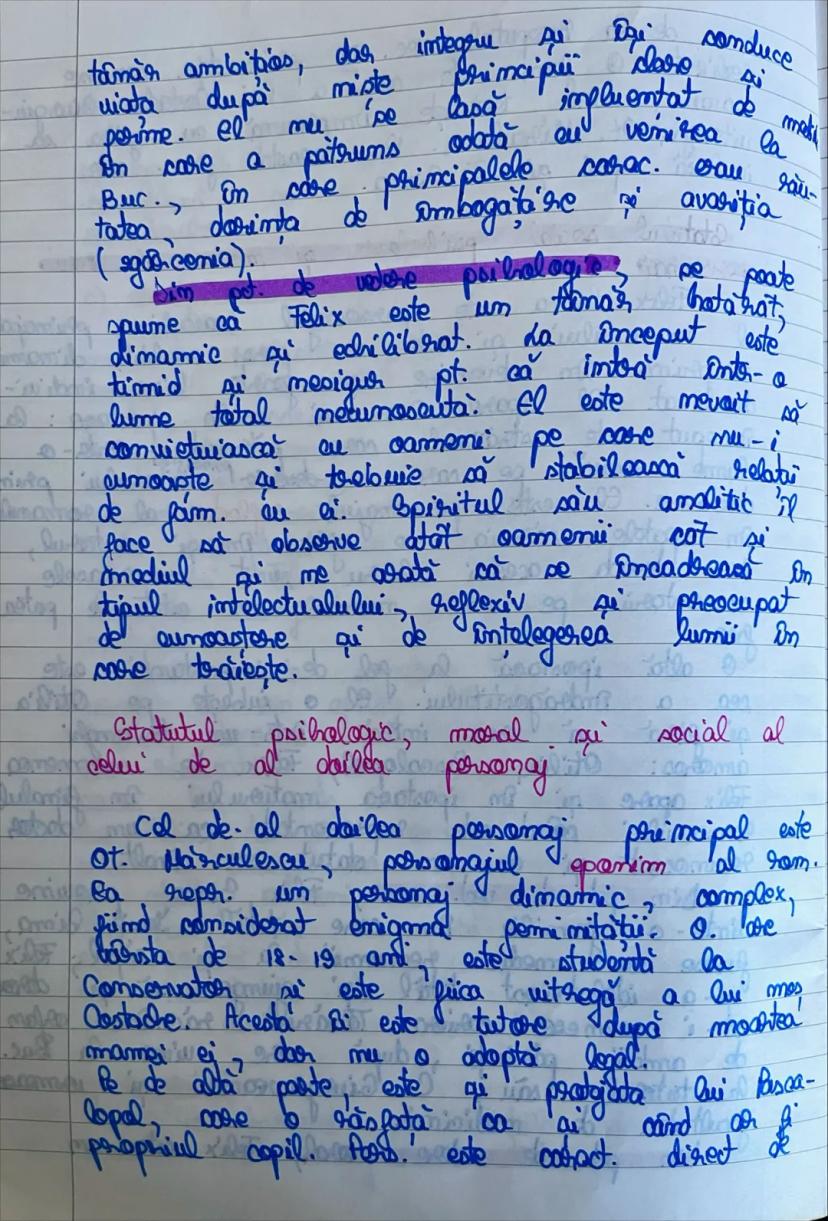 tânăr ambițios, dar integru și își conduce
viața după niște principii clare și
ferme. El nu se lasă influențat de mediul
în care a pătruns odată cu venirea la
Buc., în care principalele carac. erau rău-
tatea, dorința de îmbogățire și avariția
(zgârcenia).
Din pct. de vedere psihologic, se poate
spune că Felix este un tânăr hotărât,
dinamic și echilibrat. La început este
timid și nesigur pt. că intră într-o
lume total necunoscută. El este nevoit să
conviețuiască cu oameni pe care nu-i
cunoaște și trebuie să stabilească relații
de fam. cu ei. Spiritul său analitic îl
face să observe atât oamenii cât și
mediul și ne arată că se încadrează în
tipul intelectualului, reflexiv și preocupat
de cunoaștere și de înțelegerea lumii în
care trăiește.
Statutul psihologic, moral și social al
celui de al doilea personaj
Cel de-al doilea personaj principal este
Ot. Mărculescu, personajul eponim al rom.
Ea repr. un personaj dinamic, complex,
fiind considerat enigma feminității. O. are
vârsta de 18-19 ani, este studentă la
Conservator și este fiica vitregă a lui moș
Costache. Acesta îi este tutore după moartea
mamei ei, dar nu o adoptă legal.
Pe de altă parte, este și protejata lui Pasca-
lopol, care o răsfață ca și când ar fi
propriul copil. Pers. este caract. direct de